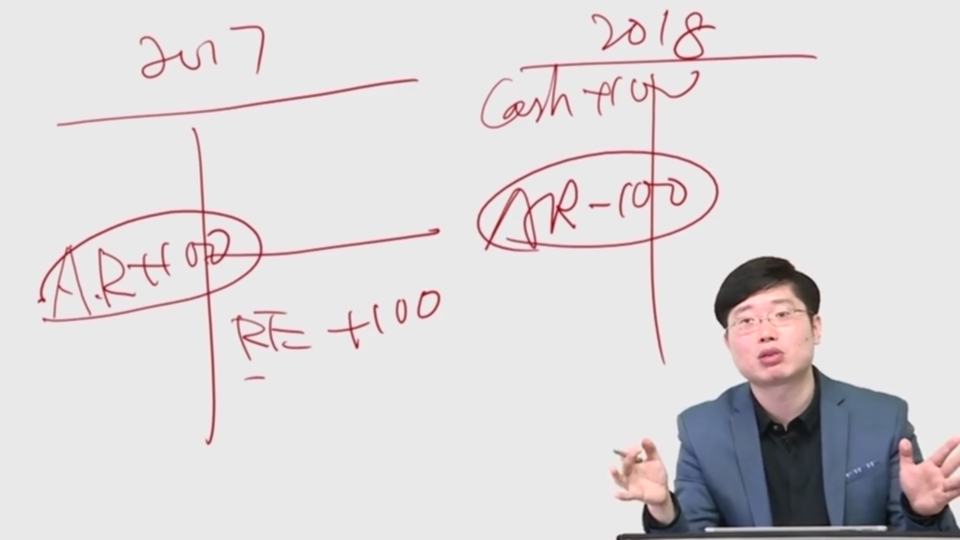 2017
A.R+100
RE +100
2018
Cash +100
AR-100